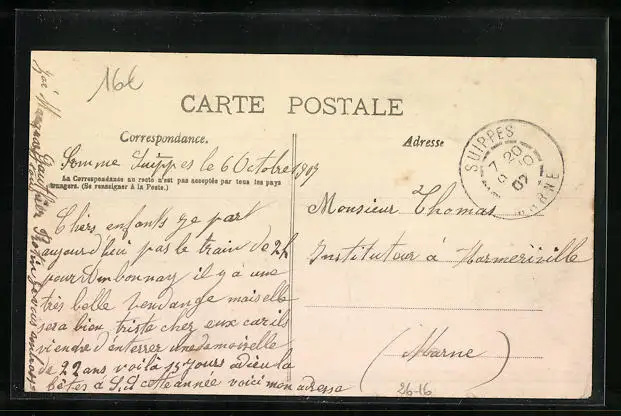 16L
CARTE POSTALE
Correspondance.
Adresse
Somme Suippes le 6 Octobre 1907
La Correspondance au recto n'est pas acceptée par tous les pays
étrangers. (Se renseigner à la Poste.)
SUIPPES
7 20
6 10
07
MARNE
Chers enfants je part
aujourd'hui pas le train de 2h
pour Ambonnay il y a une
très belle vendange mais elle
sera bien triste chez eux car ils
viendre d'enterrer une demoiselle
de 22 ans voilà 15 jours adieu la
bêtes à cette année voici mon adresse
Monsieur Thomas
Instituteur à Warmeriville
(Marne)
26-16